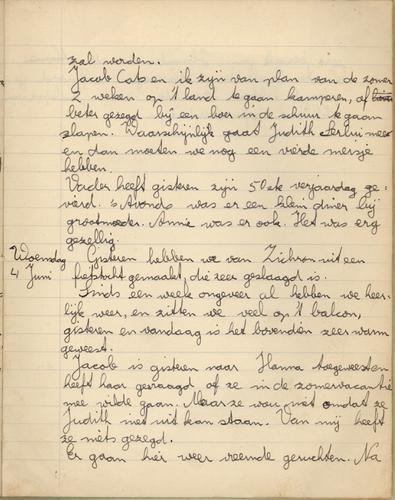 zal worden.
Jacob Cats en ik zijn van plan van de zomer
2 weken op 't land te gaan kamperen, of
beter gezegd bij een boer in de schuur te gaan
slapen. Waarschijnlijk gaat Judith mee
en dan moeten we nog een vierde meisje
hebben.
Vader heeft gisteren zijn 50ste verjaardag ge-
vierd. 's Avonds was er een klein diner bij
grootmoeder. Annie was er ook. Het was erg
gezellig.
Woensdag Gisteren hebben we van Zichron uit een
4 Juni fietstocht gemaakt, die zeer geslaagd is.
Sinds een week ongeveer al hebben we heer-
lijk weer, en zitten we veel op 't balcon,
gisteren en vandaag is het bovendien zeer warm
geweest.
Jacob is gisteren naar Hanna toegeweest en
heeft haar gevraagd of ze in de zomervacantie
mee wilde gaan. Maar ze wou niet omdat ze
Judith niet uit kan staan. Van mij heeft
ze niets gezegd.
Er gaan hier weer vreemde geruchten. Na